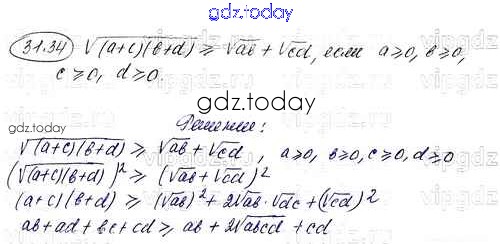 gdz.today
31.34 √(a+c)(b+d) ≥ √ab + √cd, если a≥0, b≥0,
c≥0, d≥0.
gdz.today
Решение:
gdz.today
√(a+c)(b+d) ≥ √ab + √cd, a≥0, b≥0, c≥0, d≥0
(√(a+c)(b+d))² ≥ (√ab + √cd)²
(a+c)(b+d) ≥ (√ab)² + 2√ab · √dc + (√cd)²
ab + ad + bc + cd ≥ ab + 2√abcd + cd